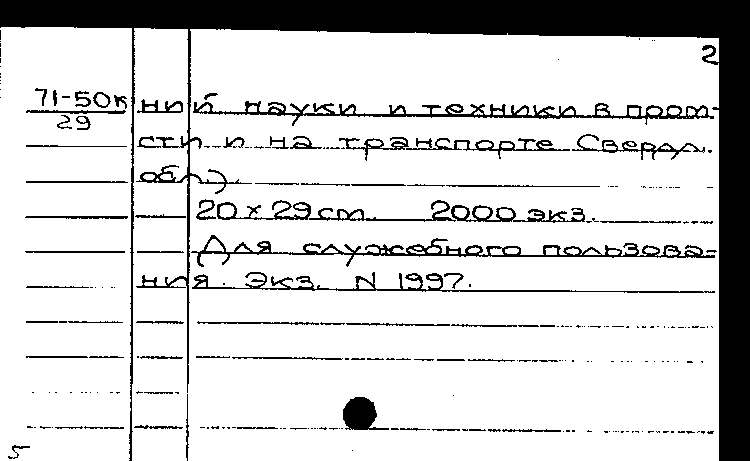 2
71-50к ний науки и техники в пром-
29
сти и на транспорте Свердл.
обл.).
20 х 29 см. 2000 экз.
Для служебного пользова-
ния. Экз. N 1997.
5